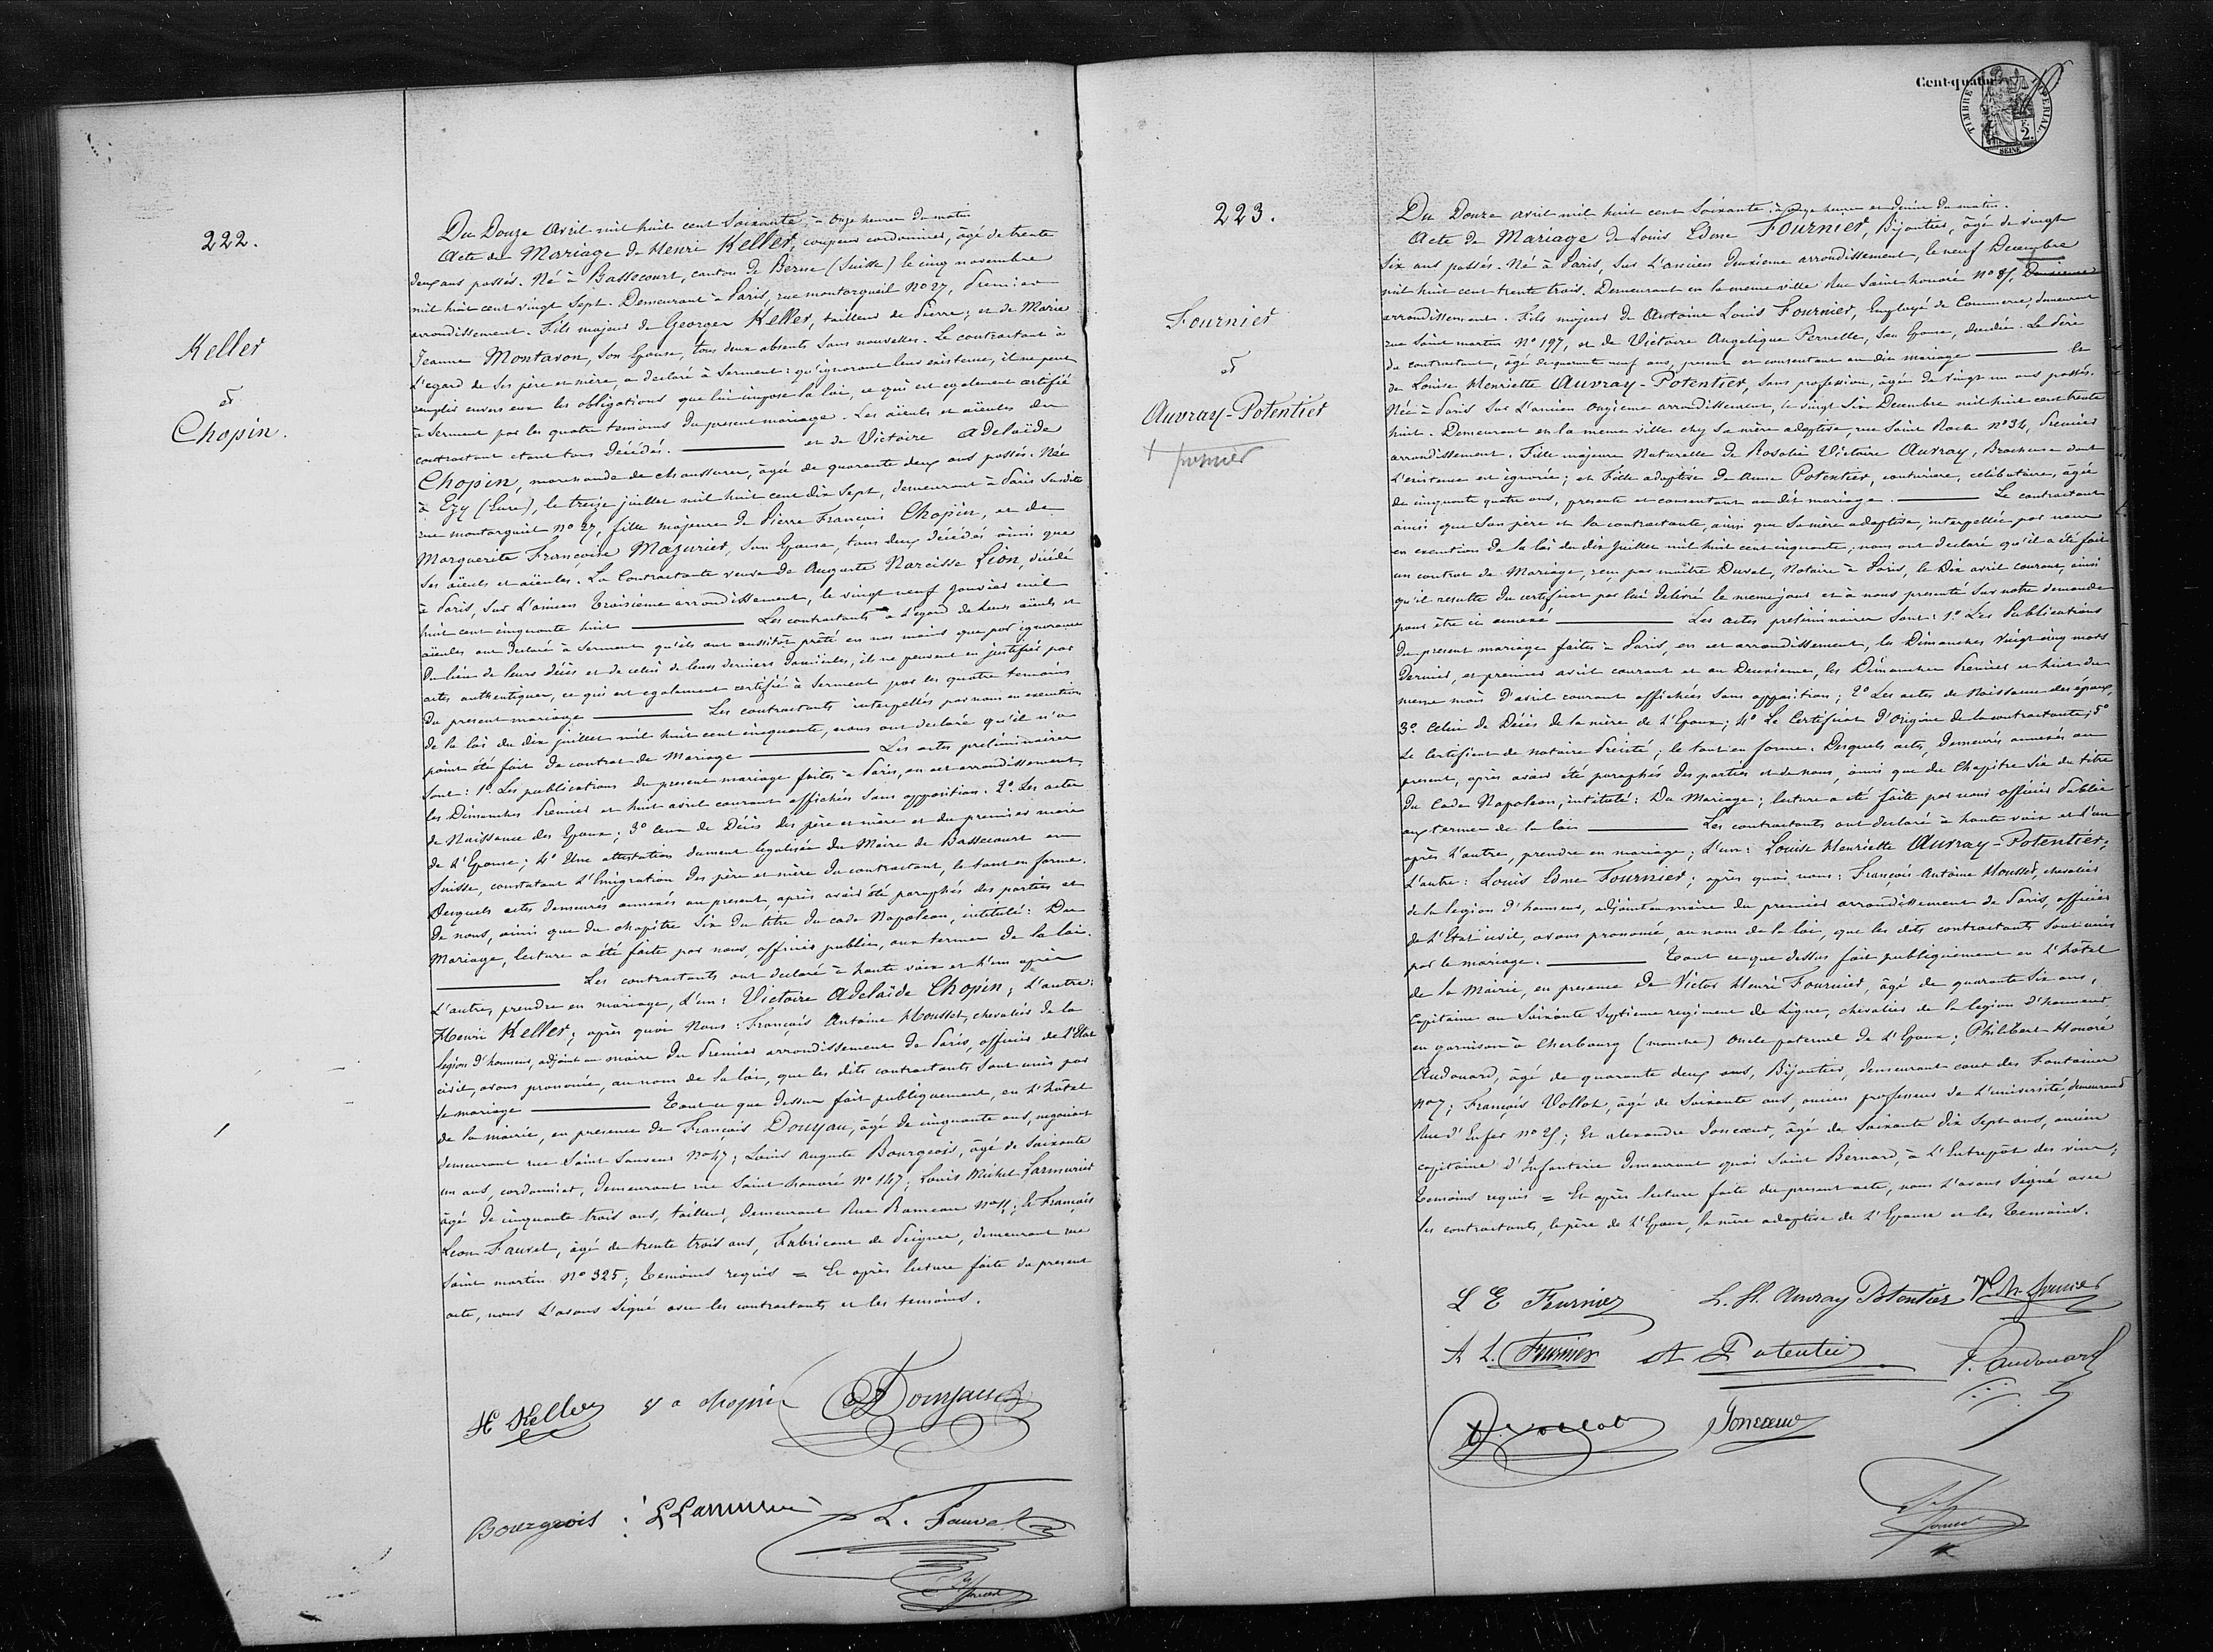 222.
Keller
et
Chopin.
Du Douze Avril mil huit cent Soixante, à Onze heures du matin
Acte de Mariage de Henri Keller, coupeur cordonnier, âgé de trente
deux ans passés. Né à Bassecourt, canton de Berne (Suisse) le cinq novembre
mil huit cent vingt Sept. Demeurant à Paris, rue montorgueil No 27, Premier
arrondissement. Fils majeur de Georges Keller, tailleur de Pierre; et de Marie
Jeanne Montavon, Son Epouse, tous deux absents Sans nouvelles. Le contractant à
l'egard de Ses père et mère, a declaré à Serment: qu'ignorant leur existence, il ne peut
remplir envers eux les obligations que lui impose la loi, ce qui est egalement certifié
à Serment par les quatre temoins du present mariage. Les aïeuls et aïeules du
contractant etant tous Décédés. et de Victoire Adelaïde
Chopin, marchande de chaussures, âgée de quarante deux ans passés. Née
à Ezy (Eure), le treize juillet mil huit cent dix Sept, demeurant à Paris Susdite
rue montorgueil no 27, fille majeure de Pierre François Chopin, et de
Marguerite Françoise Mazurier, Son Epouse, tous deux décédés ainsi que
Ses aïeuls et aïeules. La Contractante veuve de Auguste Narcisse Léon, décédé
à Paris, Sur l'ancien Troisième arrondissement, le vingt neuf Janvier mil
huit cent cinquante huit Les contractants à l'egard de leurs aïeuls et
aïeules ont declaré à Serment qu'ils ont aussitôt prêté en nos mains que par ignorance
du lieu de leurs décès et de celui de leurs derniers Domiciles, ils ne peuvent en justifier par
actes authentiques, ce qui est egalement certifié à Serment par les quatre temoins
du present mariage Les contractants interpellés par nous en execution
de la loi du dix juillet mil huit cent cinquante, nous ont declaré qu'il n'a
point été fait de contrat de Mariage Les actes preliminaires
Sont: 1o Les publications du present mariage faites à Paris, en cet arrondissement
les Dimanches Premier et huit avril courant affichées Sans opposition. 2o Les actes
de Naissance des Epoux; 3o Ceux de Décès des père et mère et du premier mari
de l'Epouse; 4o Une attestation dument legalisée du Maire de Bassecourt en
Suisse, constatant l'Emigration des père et mère du contractant, le tout en forme.
Desquels actes demeurés annexés au present, après avoir été paraphés des parties et
de nous, ainsi que du chapitre Six du titre du code Napoleon, intitulé: Du
Mariage, lecture a été faite par nous, officier public, aux termes de la loi.
Les contractants ont declaré à haute voix et l'un après
l'autre, prendre en mariage, l'un: Victoire Adelaïde Chopin; l'autre:
Henri Keller; après quoi Nous: François Antoine Mousset, chevalier de la
Légion d'honneur, adjoint au maire du Premier arrondissement de Paris, officier de l'Etat
civil, avons prononcé, au nom de la loi, que les dits contractants Sont unis par
le mariage Tout ce que dessus fait publiquement, en l'hôtel
de la mairie, en presence de François Douyau, âgé de cinquante ans, negociant
demeurant rue Saint Sauveur No 47; Louis Auguste Bourgeois, âgé de Soixante
un ans, cordonnier, demeurant rue Saint honoré No 147; Louis Michel Larmurier
âgé de cinquante trois ans, tailleur, demeurant Rue Rameau No 11; Et François
Léon Fauvel, âgé de trente trois ans, Fabricant de Peignes, demeurant rue
Saint martin No 325; Temoins requis = Et après lecture faite du present
acte, nous l'avons Signé avec les contractants et les temoins.
H Keller v a chopin Douyau
Bourgeois L Larmurier L. Fauvel
Cent-quatre
TIMBRE IMPERIAL
2.
SEINE
223.
Fournier
et
Auvray-Potentier
premier
Du Douze avril mil huit cent Soixante, à onze heures et Demie du matin.
Acte de Mariage de Louis Edme Fournier, Bijoutier, âgé de vingt
Six ans passés. Né à Paris, Sur l'ancien deuxième arrondissement, le neuf Decembre
mil huit cent trente trois. Demeurant en la meme ville Rue Saint honoré No 85, Deuxieme
arrondissement. Fils majeur de Antoine Louis Fournier, Employé de Commerce, demeurant
rue Saint martin No 197, et de Victoire Angelique Pernelle, Son Epouse, decedée. Le Père
du contractant, âgé de quarante neuf ans, present et consentant au dit mariage Et
de Louise Henriette Auvray-Potentier, Sans profession, âgée de vingt un ans passés.
Née à Paris Sur l'ancien onzieme arrondissement, le vingt Six Decembre mil huit cent trente
huit. Demeurant en la meme ville chez Sa mère adoptive, rue Saint Roch No 34, Premier
arrondissement. Fille majeure Naturelle de Rosalie Victoire Auvray, Brocheuse dont
l'existence est ignorée; et Fille adoptive de Anne Potentier, couturière, célibataire, âgée
de cinquante quatre ans, presente et consentant au dit mariage. Le contractant
ainsi que Son père et la contractante, ainsi que Sa mère adoptive, interpellés par nous
en execution de la loi du dix Juillet mil huit cent cinquante, nous ont declaré qu'il a été fait
un contrat de Mariage, recu par maître Duval, Notaire à Paris, le Dix avril courant, ainsi
qu'il resulte du certificat par lui delivré le meme jour et à nous presenté Sur notre demande
pour être ci annexé Les actes preliminaires Sont: 1o Les Publications
du present mariage faites à Paris, en cet arrondissement, les Dimanches Vingt cinq mars
dernier, et premier avril courant et au Deuxieme, les Dimanches Premier et huit du
meme mois d'avril courant affichées Sans opposition; 2o Les actes de Naissance des époux,
3o Celui de Décès de la mère de l'Epoux; 4o Le Certificat d'origine de la contractante; 5o
Le Certificat de notaire Précité; le tout en forme. Desquels actes, demeurés annexés au
present, après avoir été paraphés des parties et de nous, ainsi que du Chapitre Six du titre
du Code Napoleon, intitulé: Du Mariage; lecture a été faite par nous officier Public
aux termes de la loi Les contractants ont declaré à haute voix et l'un
après l'autre, prendre en mariage; l'un: Louise Henriette Auvray-Potentier;
l'autre: Louis Edme Fournier; après quoi nous: François Antoine Mousset, chevalier
de la legion d'honneur, adjoint au maire du premier arrondissement de Paris, officier
de l'Etat civil, avons prononcé, au nom de la loi, que les dits contractants Sont unis
par le mariage. Tout ce que dessus fait publiquement en l'hôtel
de la Mairie, en presence de Victor Henri Fournier, âgé de quarante Six ans,
Capitaine au Soixante Septieme regiment de Ligne, chevalier de la legion d'honneur,
en garnison à Cherbourg (manche) Oncle paternel de l'Epoux; Philibert Honoré
Audouard, âgé de quarante deux ans, Bijoutier, demeurant cour des Fontaines
No 7; François Vollot, âgé de Soixante ans, ancien professeur de l'université, demeurant
Rue d'Enfer No 25; Et alexandre Joncoeur, âgé de Soixante dix Sept ans, ancien
capitaine d'Infanterie demeurant quai Saint Bernard, à l'Entrepôt des vins;
Temoins requis = Et après lecture faite du present acte, nous l'avons Signé avec
les contractants, le père de l'Epoux, la mère adoptive de l'Epouse et les Temoins.
L E Fournier L. H. Auvray Potentier V. H. Fournier
A L. Fournier A Potentier P. audouard
Vollot Joncoeur